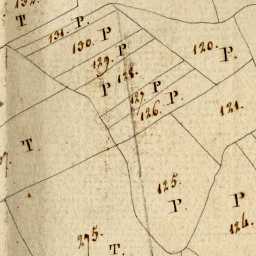 132.
T
P.
131.
P
130.
P
120.
P.
129.
128.
P
P
127
P.
126.
121.
T.
125.
P.
P
124.
295.
T.